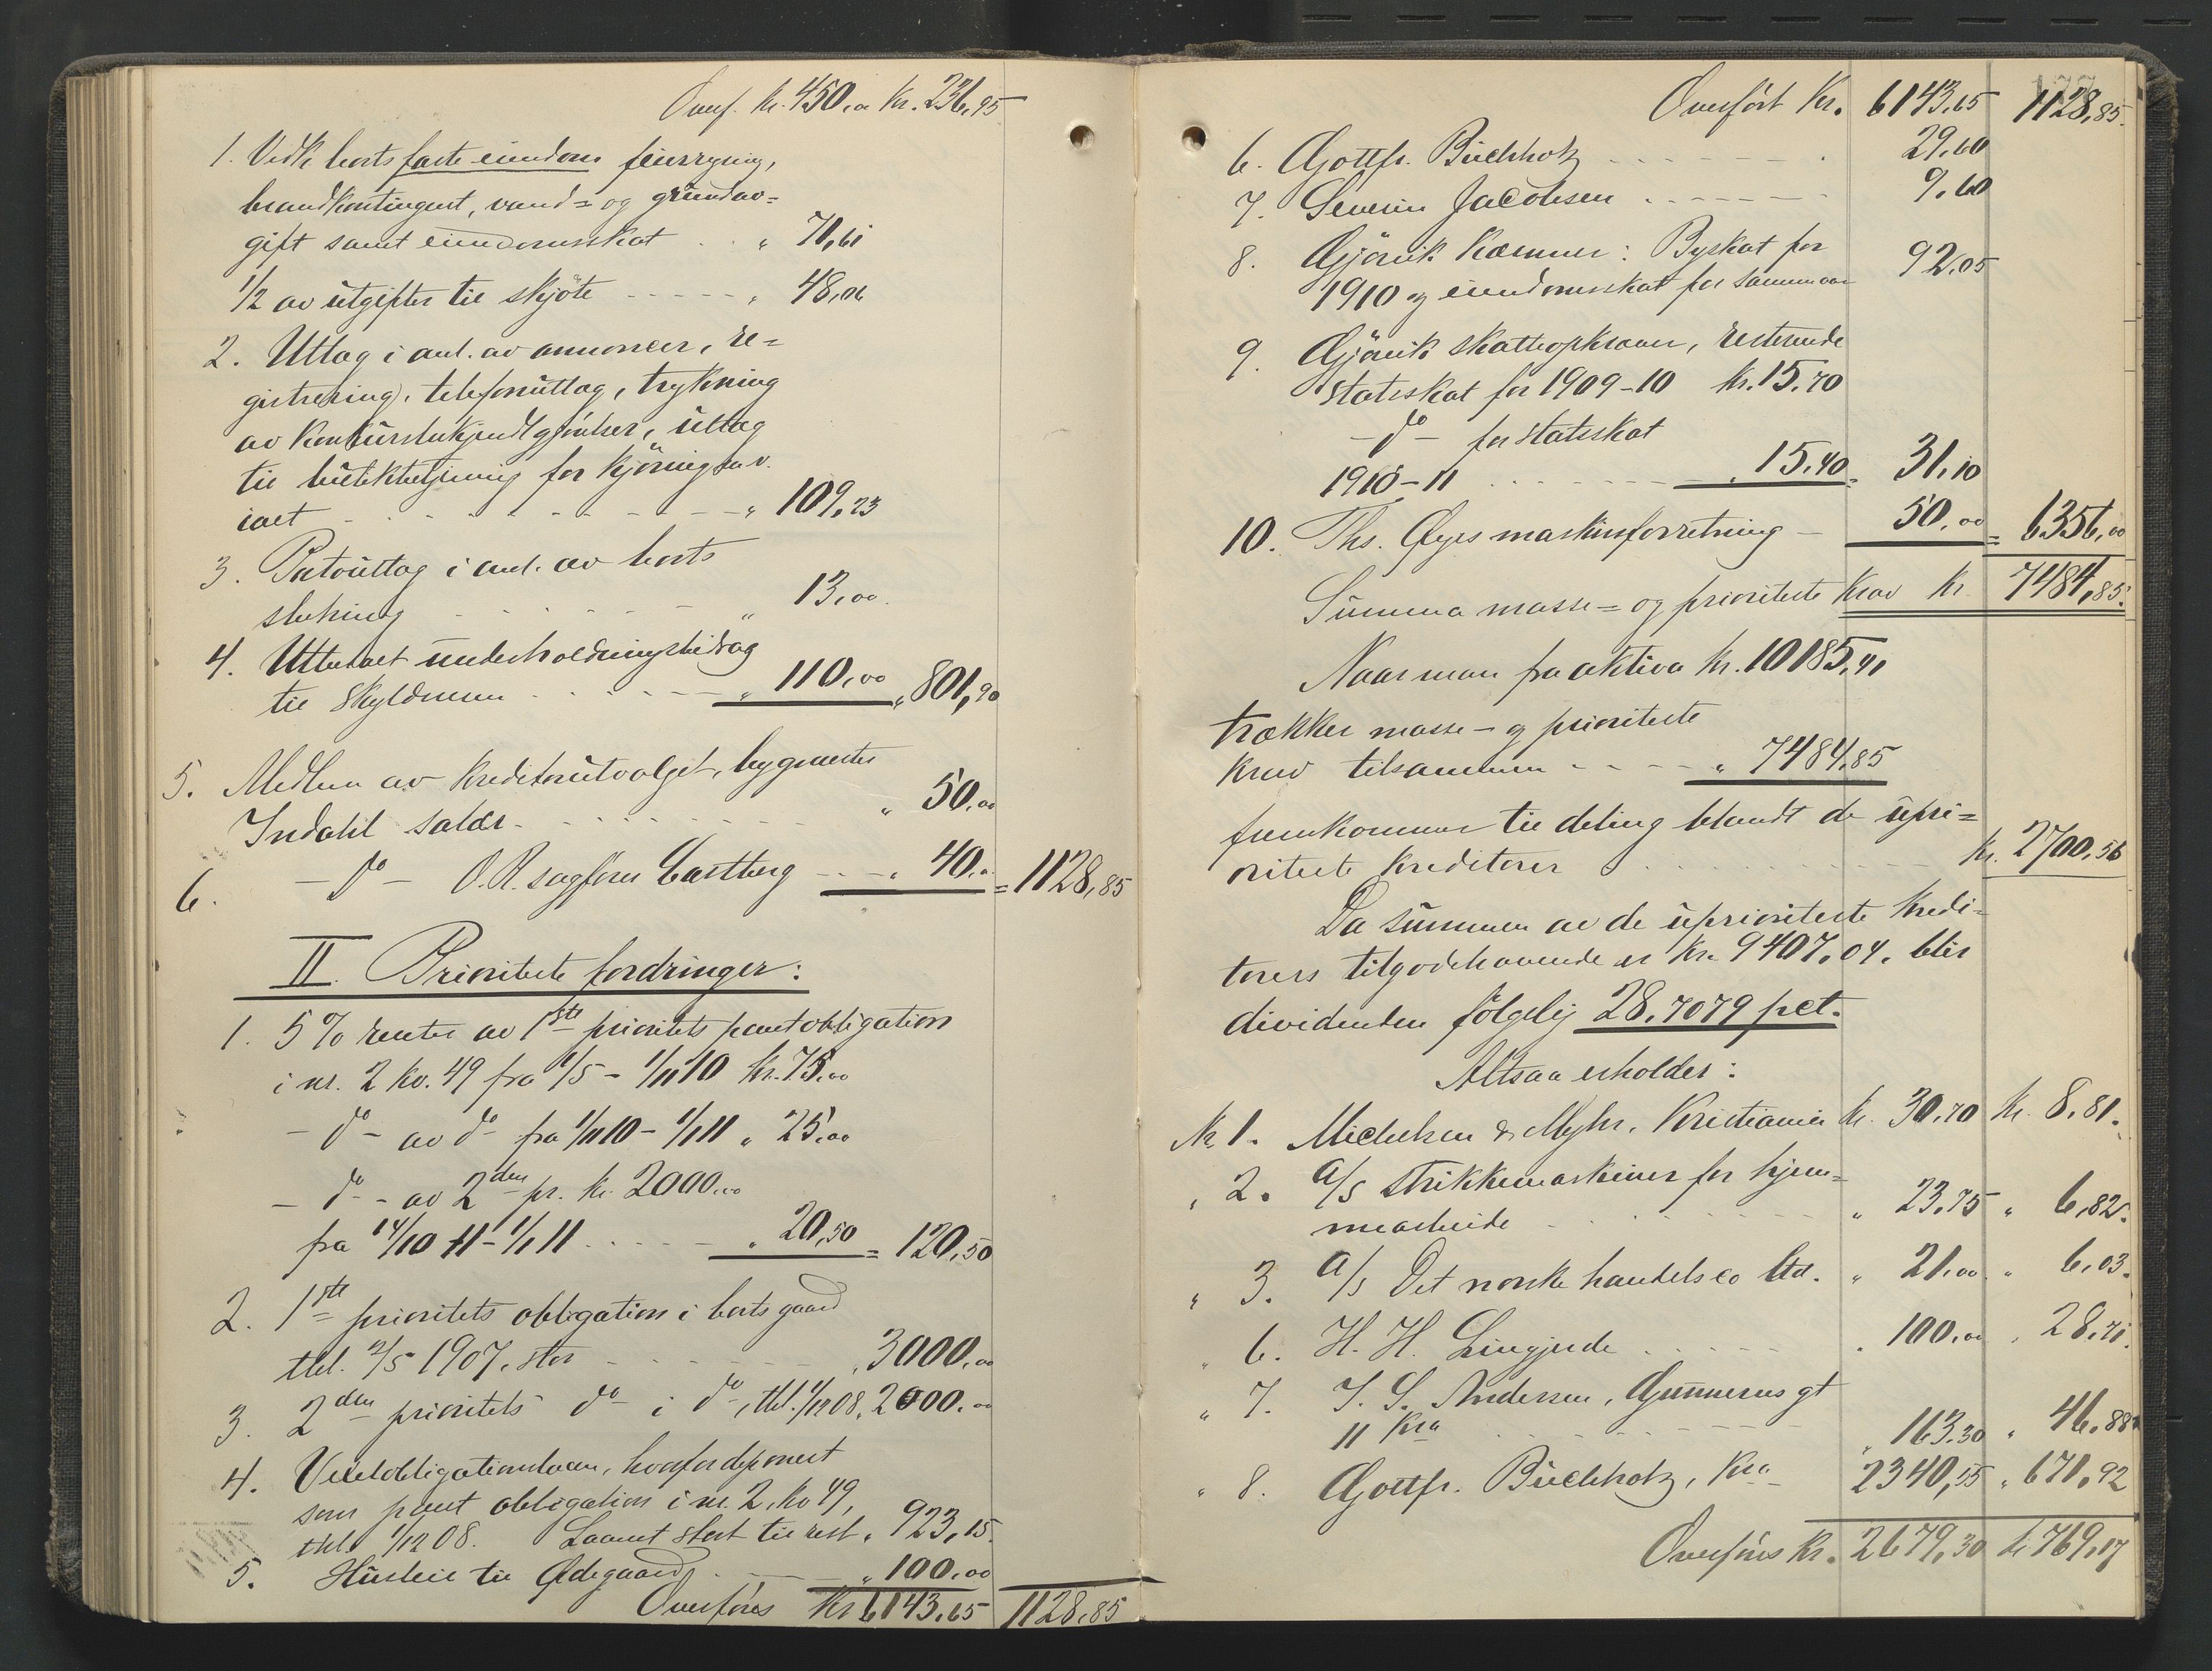 Overf. kr. 450,00 Kr. 236,95
1. Vedk. borts faste eiendom feierrygning,
brandkontingent, vand- og grundav-
gift samt eiendomsskat . . " 71,61
1/2 av utgifter til skjöte - - - - " 48,06
2. Utlæg i anl. av annoncer, re-
gistrering, telefonutlæg, trykning
av konkursbekjendtgjörelser, utlæg
til butikbetjening for kjöring m.v.
ialt - - - - - - - - " 109,23
3. Portoutlæg i anl. av borts
slutning - - - - - - " 13,00
4. Utbetalt underholdningsbidrag
til skyldneren - - - - - " 110,00 " 801,90
5. Medlem av kreditorutvalget, bygmester
Indahl salær - - - - - - " 50,00
6. - do - O.R. sagförer Castberg - - - " 40,00 = 1128,85
II Prioriterte fordringer:
1. 5 % renter av 1ste prioritets pantobligation
i nr. 2 kv. 49 fra 1/5 - 1/11 10 kr. 75,00
- do - av do - fra 1/11 10 - 1/1 11 " 25,00
- do - av 2den pr. kr. 2000,00
fra 14/10 11 - 1/1 11 - - - - " 20,50 = 120,50
2. 1ste prioritets obligation i borts gaard
thl. 2/5 1907, stor - - - - - " 3000,00
3. 2den prioritets do i do, thl. 1/12 08, 2000,00
4. Vexelobligationslaan, hvorfor deponert
som pant obligation i nr. 2, kv 49,
thl. 1/12 08. Laanet stort til rest " 923,15
5. Husleie til Ødegaard - - - " 100,00
Overföres Kr 6143,65 1128,85
Overfört Kr. 6143,65 1128,85
6. Gottfr. Büchholz - - - - - - 29,60
7. Severin Jacobsen - - - - - - 9,60
8. Gjövik Kæmner: Byskat for
1910 og eiendomsskat for samme aar 92,05
9. Gjövik skatteopkræver, resterende
statsskat for 1909-10 kr. 15,70
- do - for statsskat
1910-11 - - - - - - " 15,40 = 31,10
10. Ths. Øyes maskinforretning - 50,00 = 6356,00
Summa masse- og prioriterte krav kr. 7484,85
Naar man fra aktiva kr. 10185,41
trækker masse- og prioriterte
krav tilsammen - - - - " 7484,85
fremkommer til deling blandt de upri-
oriterte kreditorer - - - - - - kr. 2700,56
Da summen av de uprioriterte kredi-
torers tilgodehavende er kr. 9407,04, blir
dividenden fölgelig 28,7079 pct.
Altsaa erholder:
Nr 1. Michelsen & Myhr, Kristiania kr. 30,70 kr. 8,81.
" 2. A/S Strikkemaskiner for hjem-
mearbeide - - - - - - " 23,75 " 6,82.
" 3. A/S Det norske handels co Ltd. " 21,00 " 6,03.
" 6. H. H. Lingjerde - - - - - " 100,00 " 28,71.
" 7. J. S. Andersen, Gunnerus gt
11 Kra - - - - - - " 163,30 " 46,88
" 8. Gottfr. Büchholz, Kra 2340,55 " 671,92
Overföres Kr. 2679,30 kr 769,17